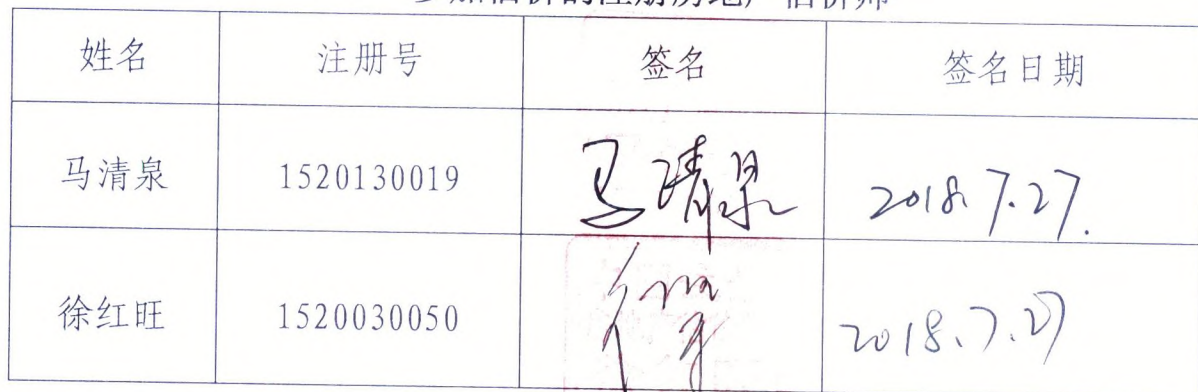 参加估价的注册房地产估价师
姓名 注册号 签名 签名日期
马清泉 1520130019 马清泉 2018.7.27.
徐红旺 1520030050 2018.7.27